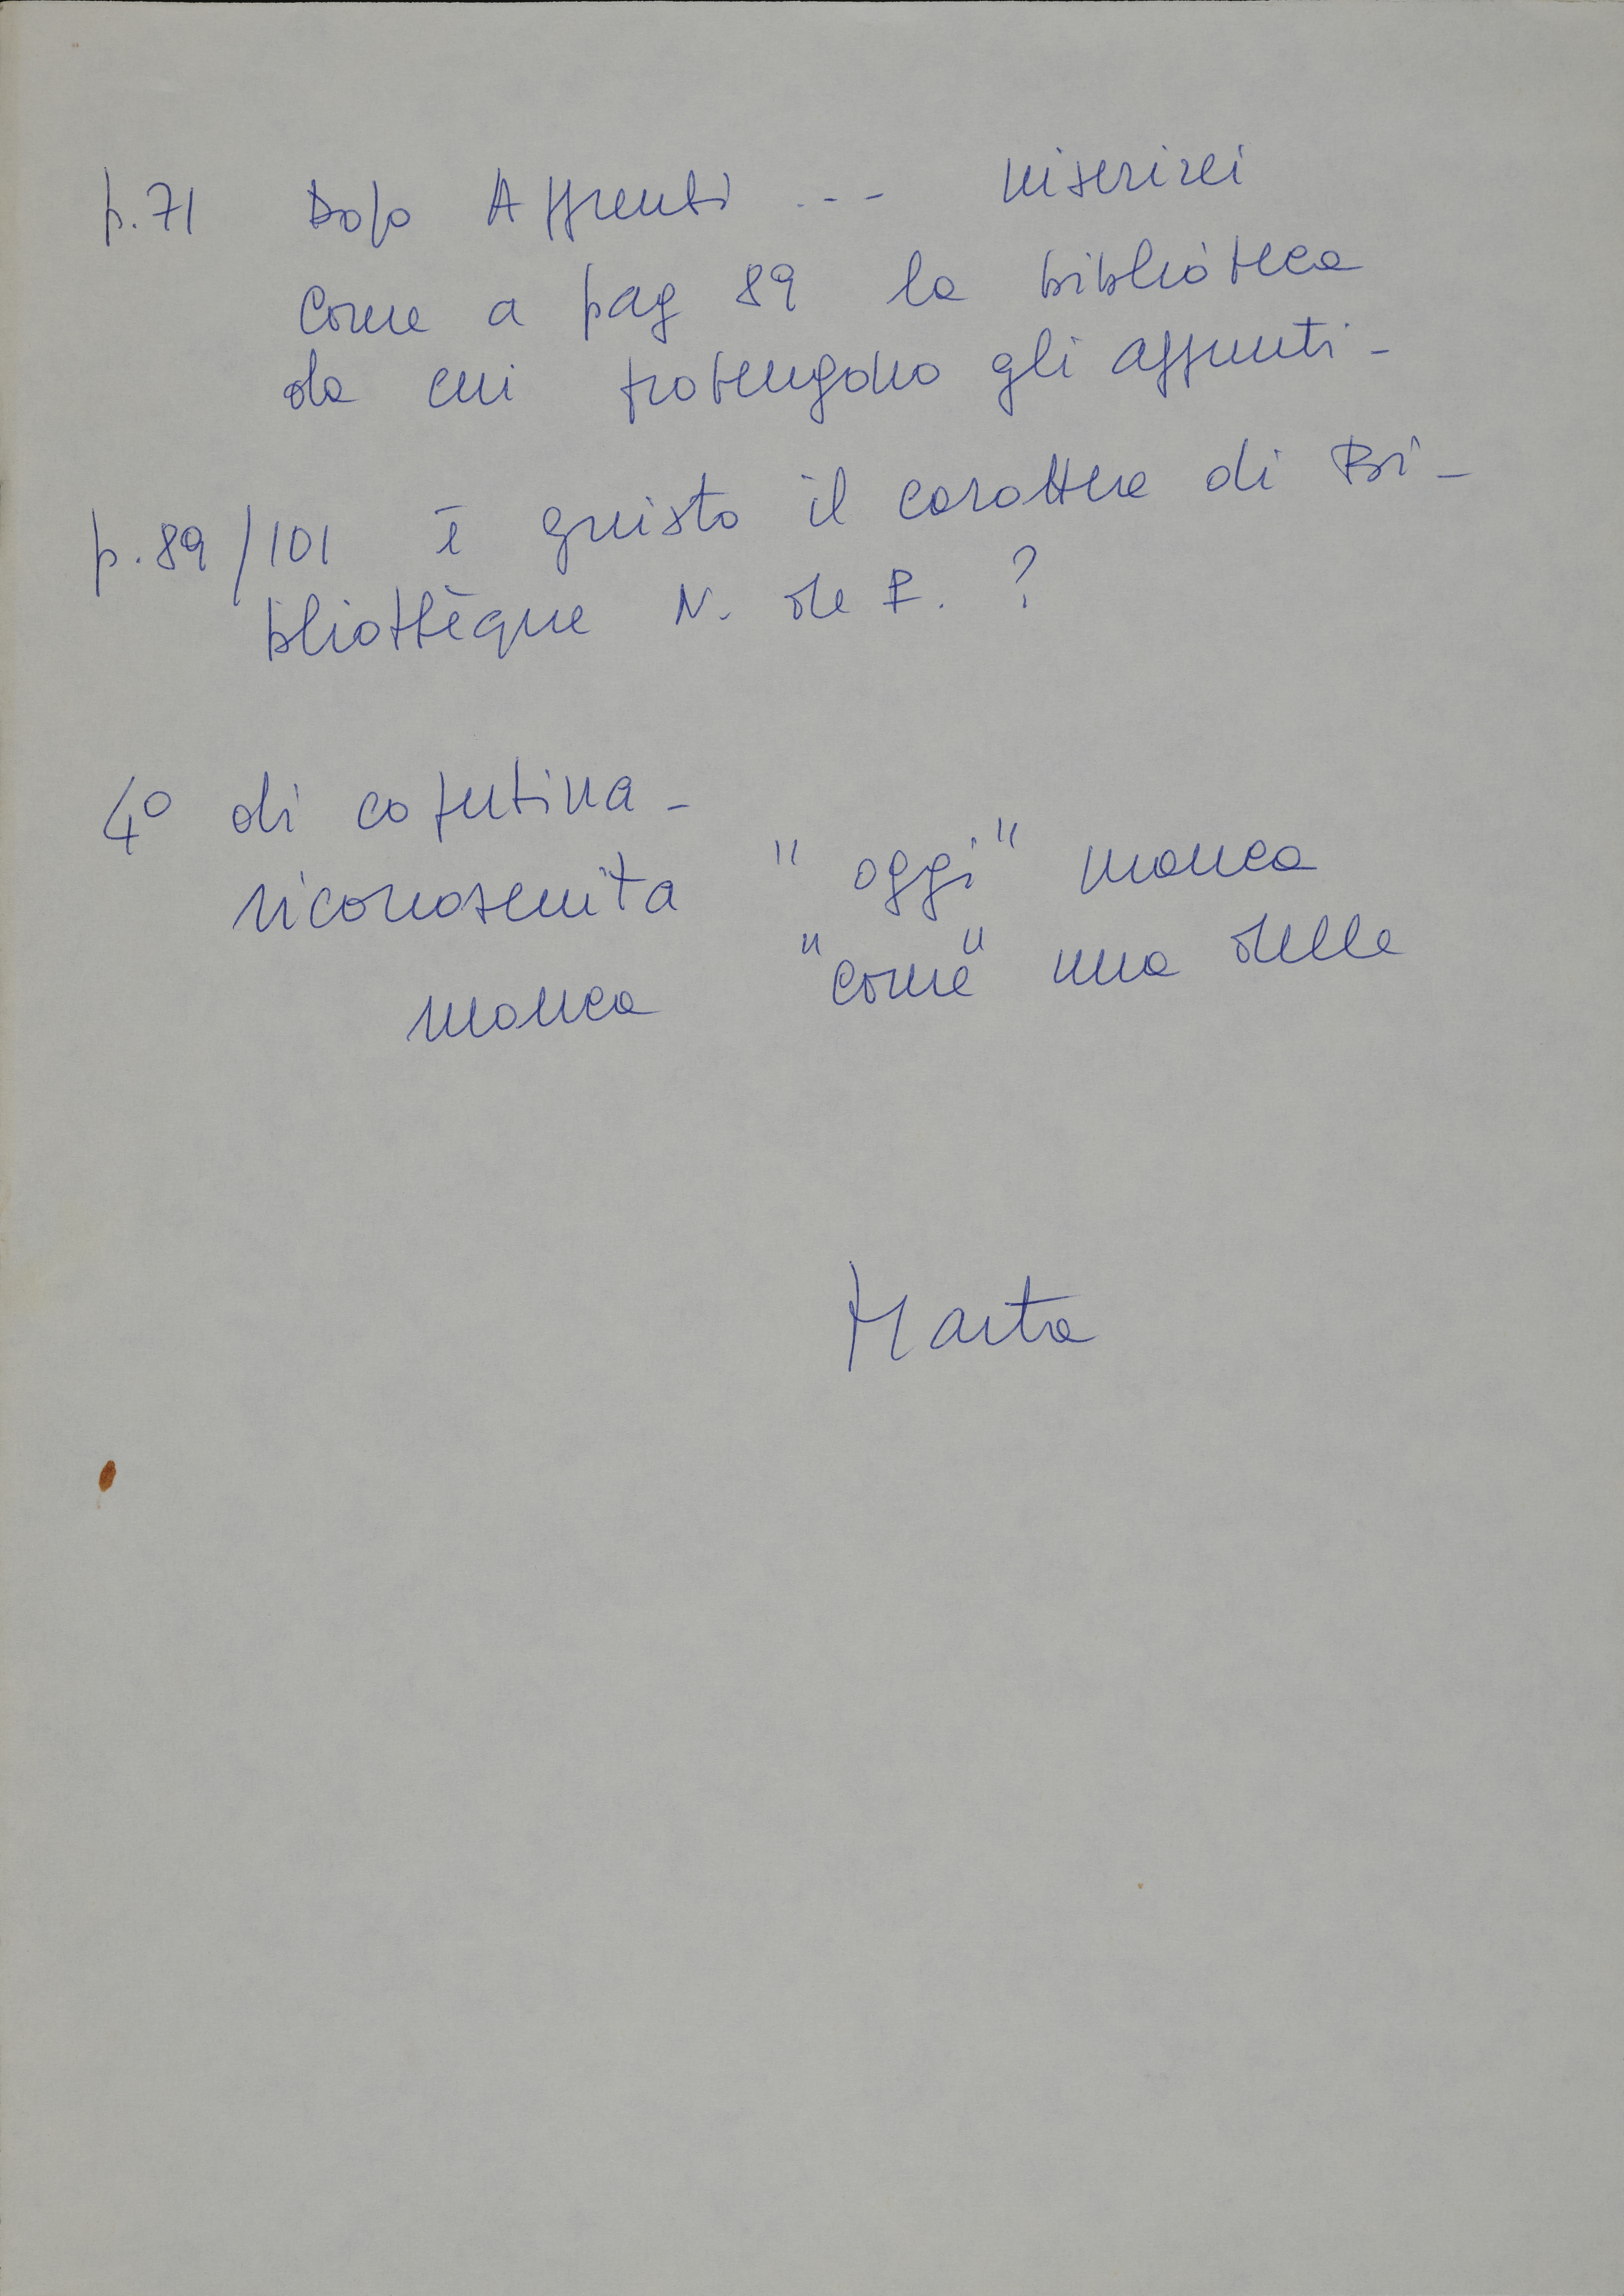 p.71 Dopo Appunti --- inserirei
come a pag 89 la biblioteca
da cui provengono gli appunti -
p.89/101 è giusto il carattere di Bi-
bliothèque N. de F. ?
4° di copertina -
riconosciuta "oggi" manca
manca "come" una delle
Marta